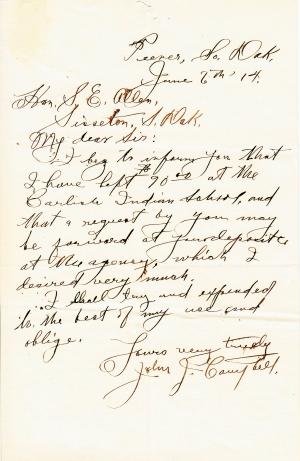 Peever, So. Dak.
June 6th '14.
Hon. S. E. Allen,
Sisseton, S. Dak.
My dear Sir:
I beg to inform you that
I have left $90.00 at the
Carlisle Indian School, and
that a request by you may
be forward at your deposite
at the agency, which I
desired very much.
I shall try and expended
to the best of my use and
oblige.
Yours very truly
John J. Campbell.